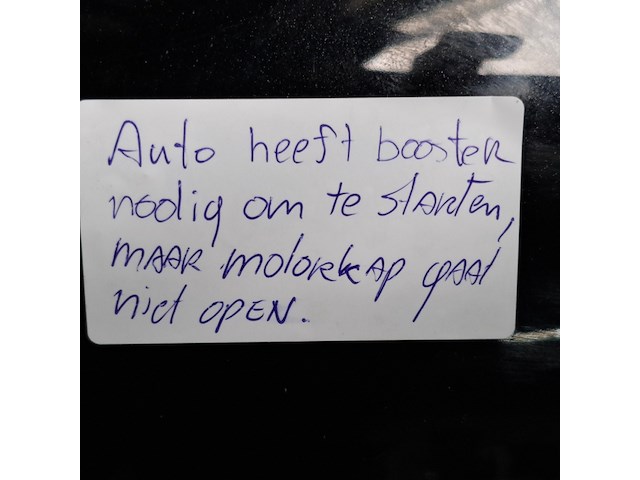 Auto heeft booster
nodig om te starten,
maar motorkap gaat
niet open.